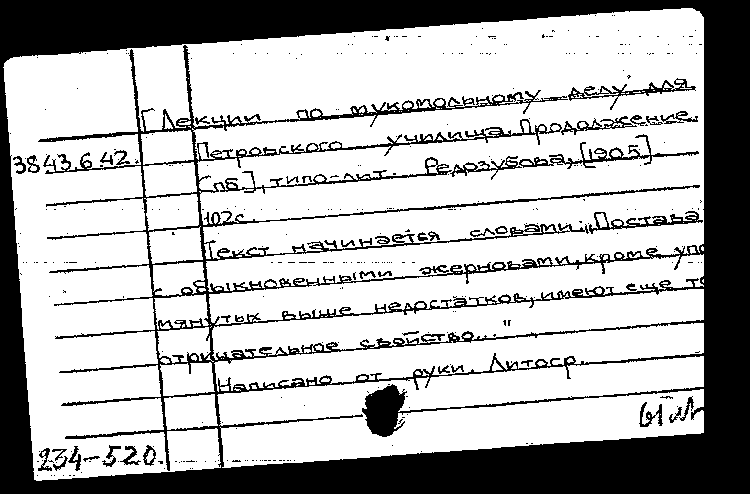 [Лекции по мукомольному делу для
38.43.6.42. Петровского училища. Продолжение.
Спб.], типо-лит. Редозубова, [1905].
102с.
Текст начинается словами: „Постава
с обыкновенными жерновами, кроме упо
мянутых выше недостатков, имеют еще то
отрицательное свойство..."
Написано от руки. Литогр.
234-520.